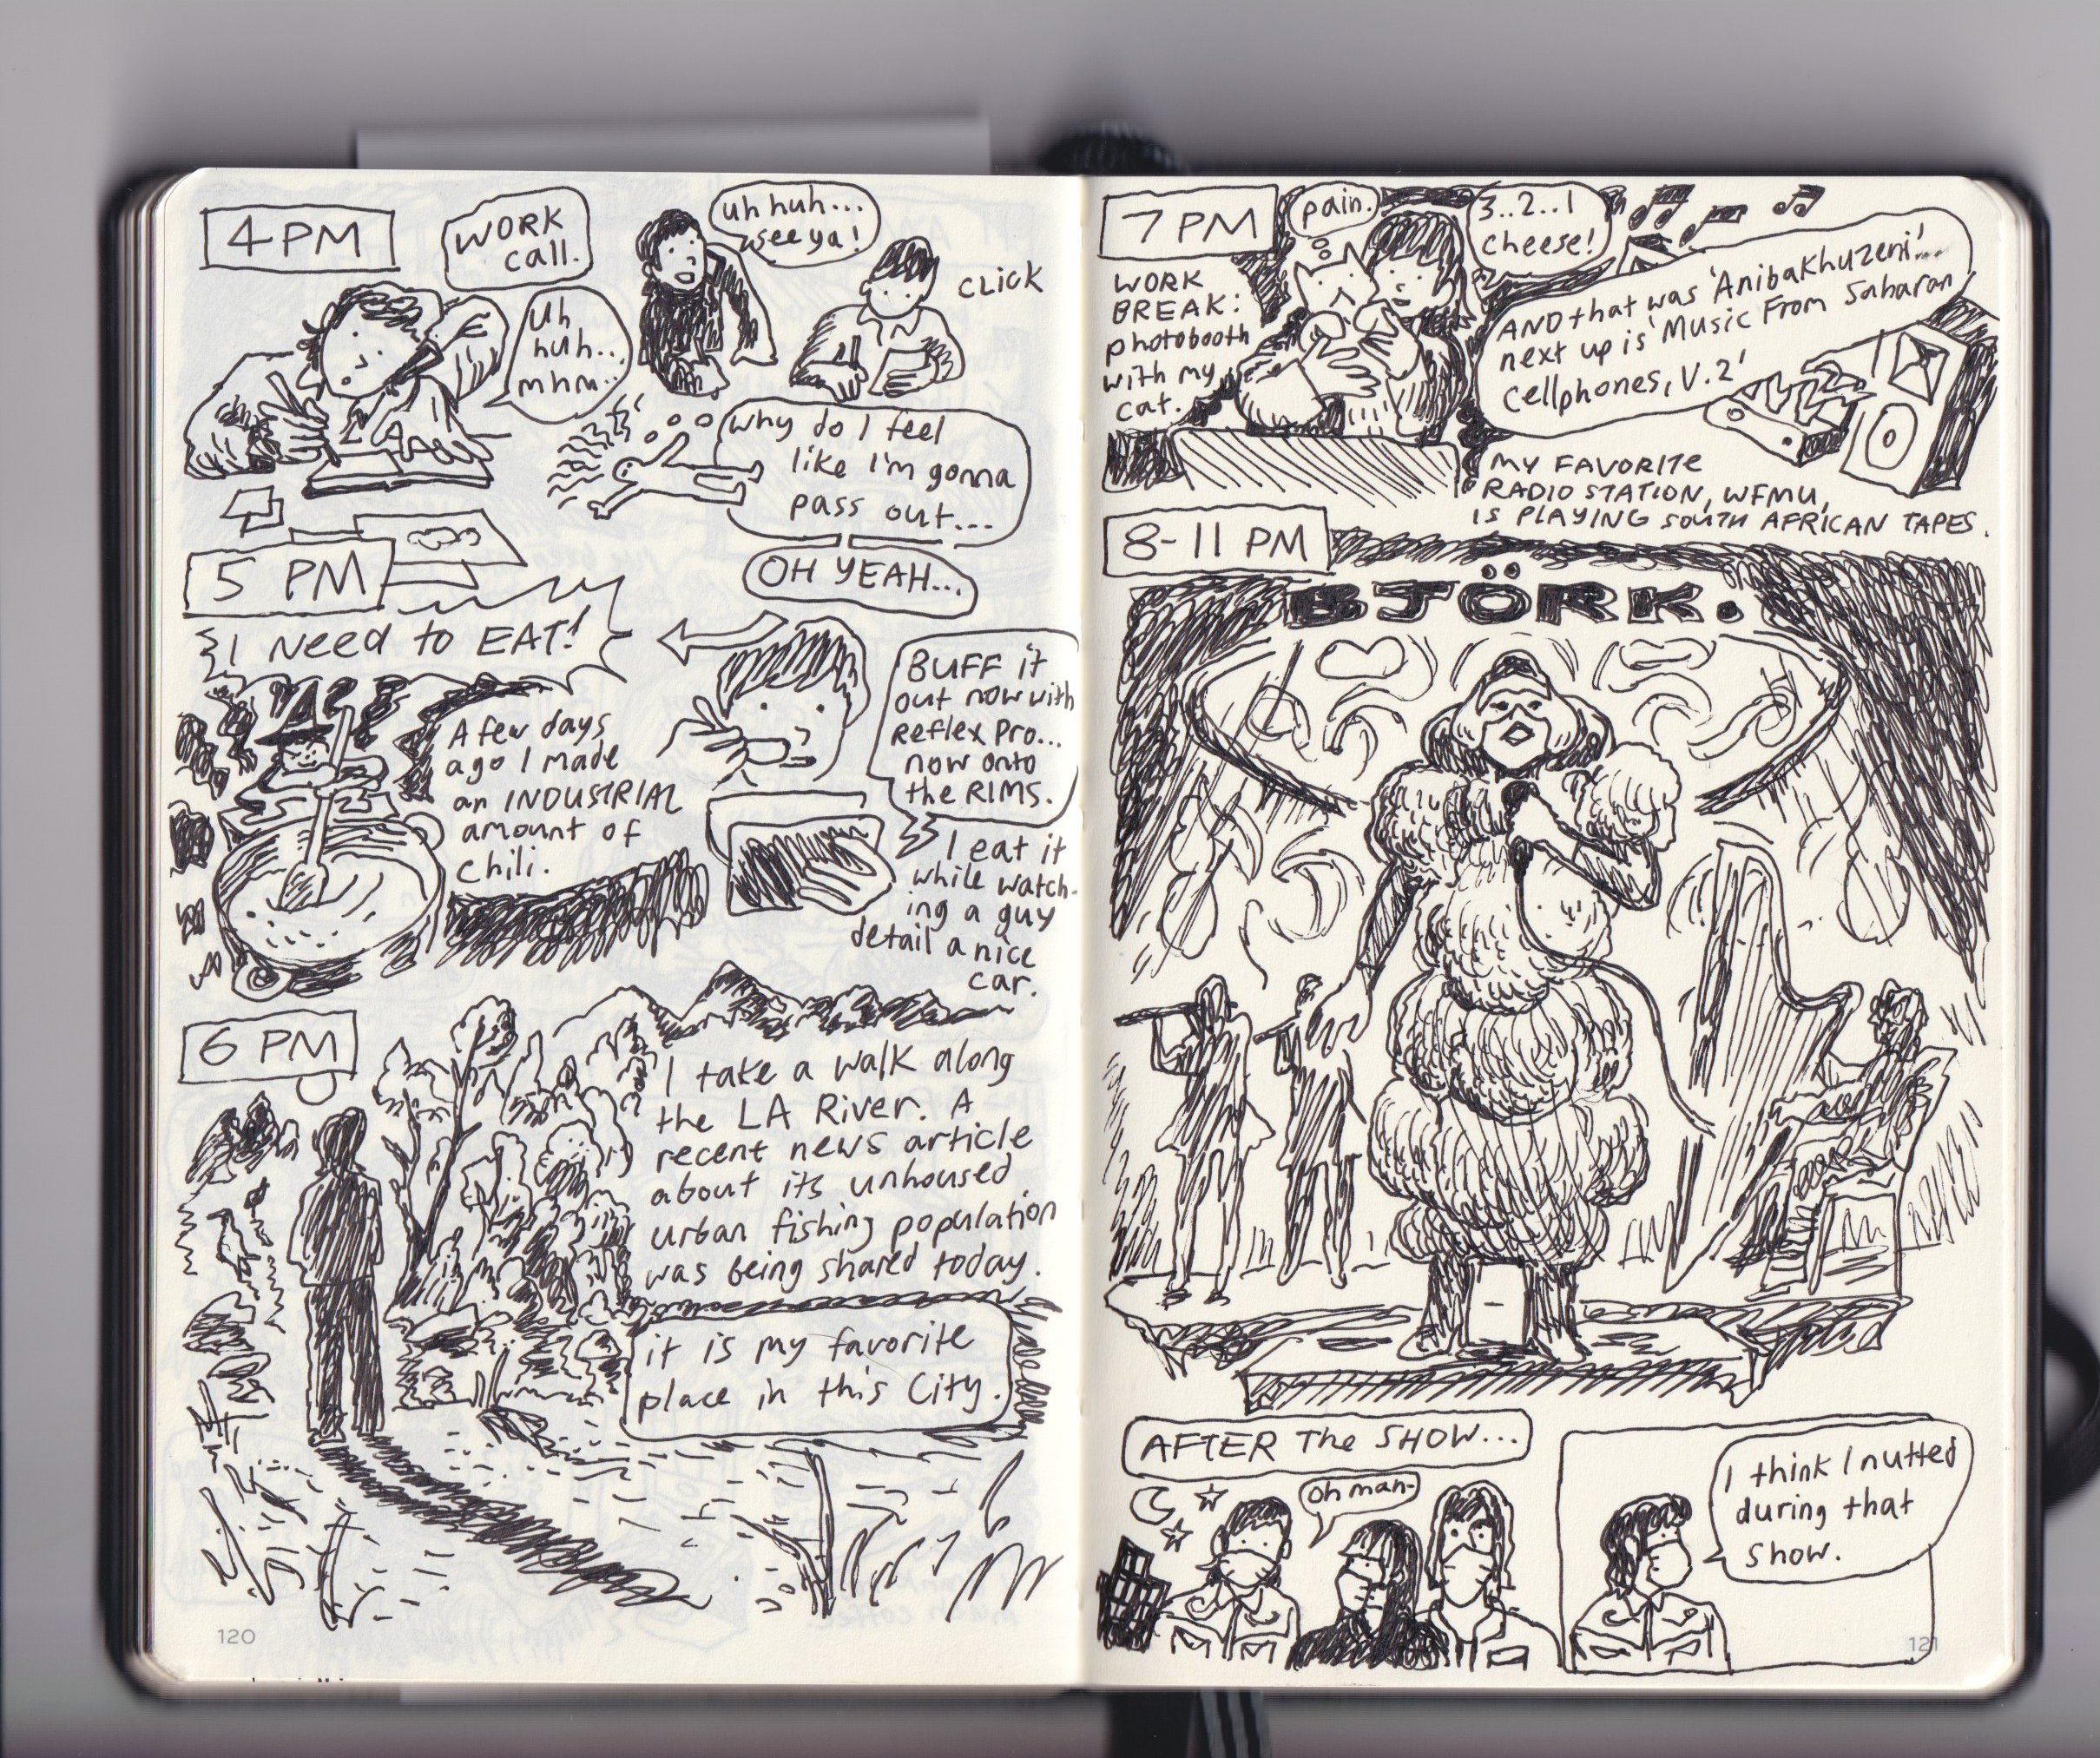 4 PM
WORK
call.
uh
huh..
mhm..
uh huh...
see ya!
CLICK
why do I feel
like I'm gonna
pass out...
OH YEAH...
5 PM
I Need to EAT!
A few days
ago I made
an INDUSTRIAL
amount of
chili.
BUFF it
out now with
Reflex Pro...
now onto
the RIMS.
I eat it
while watch-
ing a guy
detail a nice
car.
6 PM
I take a walk along
the LA River. A
recent news article
about its unhoused
urban fishing population
was being shared today.
it is my favorite
place in this City.
120
7 PM
WORK
BREAK:
photobooth
with my
cat.
pain.
3..2..1
cheese!
AND that was 'Anibakhuzeni'...
next up is 'Music From Saharan
cellphones, V.2'
MY FAVORITE
RADIO STATION, WFMU,
IS PLAYING SOUTH AFRICAN TAPES.
8-11 PM
BJÖRK.
AFTER The SHOW...
oh man-
I think I nutted
during that
show.
121